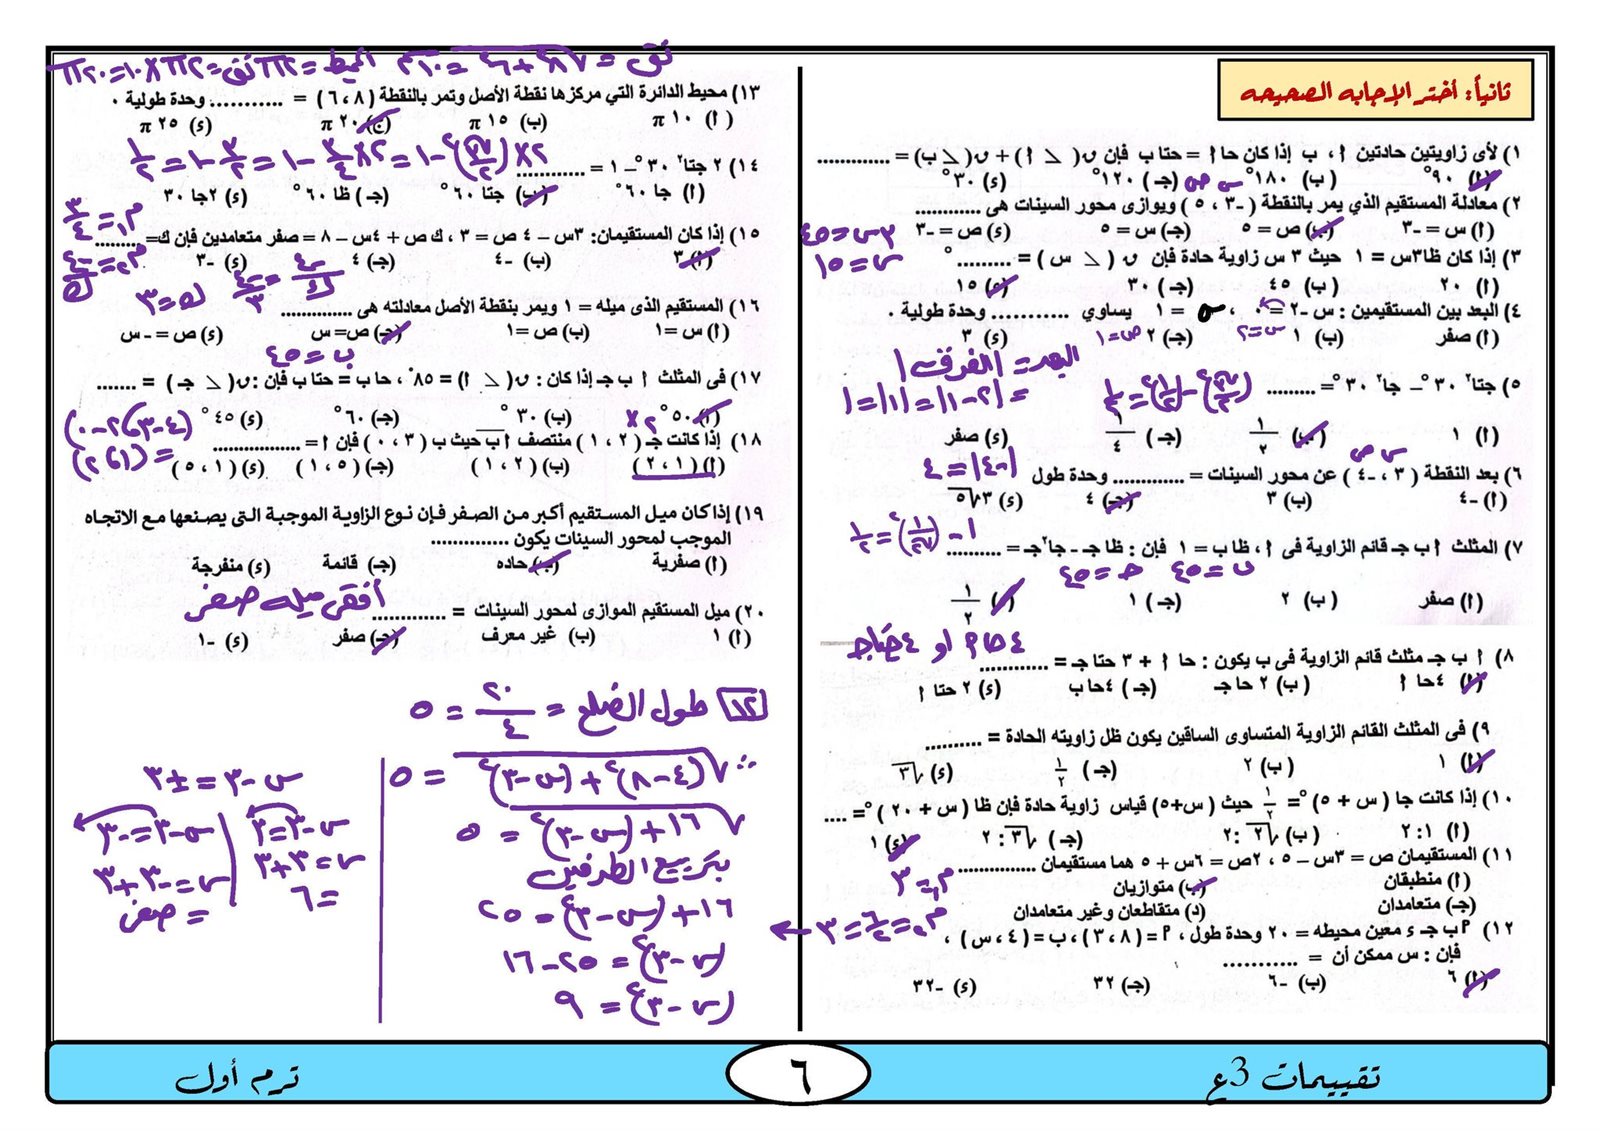 ثانياً: أختر الإجابه الصحيحه
١) لأى زاويتين حادتين أ ، ب إذا كان حا أ = حتا ب فإن ن( ∠ أ) + ن( ∠ ب) = .............
(أ) ٩٠° (ب) ١٨٠° (جـ) ١٢٠° (ء) ٣٠°
س ص
٢) معادلة المستقيم الذي يمر بالنقطة ( -٣ ، ٥ ) ويوازى محور السينات هى .............
(أ) س = -٣ (ب) ص = ٥ (جـ) س = ٥ (ء) ص = -٣
٣) إذا كان ظا٣س = ١ حيث ٣ س زاوية حادة فإن ن ( ∠ س ) = ......... °
(أ) ٢٠ (ب) ٤٥ (جـ) ٣٠ (ء) ١٥
٣س = ٤٥
س = ١٥
٤) البعد بين المستقيمين : س -٢ = ٠ ، ص = ١ يساوي ........... وحدة طولية ٠
(أ) صفر (ب) ١ (جـ) ٢ (ء) ٣
س=٢ ص=١
البعد = |الفرق|
= |٢-١| = |١| = ١
٥) جتا² ٣٠° – جا² ٣٠° = .........
(أ) ١ (ب) ١/٢ (جـ) ١/٤ (ء) صفر
(√٣/٢)² - (١/٢)² = ١/٢
س ص
٦) بعد النقطة ( ٣ ، -٤ ) عن محور السينات = ............. وحدة طول
(أ) -٤ (ب) ٣ (جـ) ٤ (ء) ٣√٥
|-٤| = ٤
٧) المثلث أ ب جـ قائم الزاوية فى أ ، ظا ب = ١ فإن : ظا جـ - جا² جـ = ..........
ب = ٤٥ جـ = ٤٥
١ - (١/√٢)² = ١/٢
(أ) صفر (ب) ٢ (جـ) ١ (ء) ١/٢
٤حا أ او ٤حتا جـ
٨) أ ب جـ مثلث قائم الزاوية فى ب يكون : حا أ + ٣ حتا جـ = ............
(أ) ٤حا أ (ب) ٢ حا جـ (جـ) ٤حا ب (ء) ٢ حتا أ
٩) فى المثلث القائم الزاوية المتساوى الساقين يكون ظل زاويته الحادة = ..........
(أ) ١ (ب) ٢ (جـ) ١/٢ (ء) √٣
١٠) إذا كانت جا ( س + ٥ )° = ١/٢ حيث ( س+٥) قياس زاوية حادة فإن ظا ( س + ٢٠ )° = ....
(أ) ١ : ٢ (ب) √٢ : ٢ (جـ) √٣ : ٢ (ء) ١
١١) المستقيمان ص = ٣س – ٥ ، ٢ص = ٦س + ٥ هما مستقيمان ..............
(أ) منطبقان (ب) متوازيان
(جـ) متعامدان (د) متقاطعان وغير متعامدان
م١ = ٣
م٢ = ٦/٢ = ٣
١٢) أ ب جـ ء معين محيطه = ٢٠ وحدة طول ، أ = ( ٨ ، ٣ ) ، ب = ( ٤ ، س ) ،
فإن : س ممكن أن = ...........
(أ) ٦ (ب) -٦ (جـ) ٣٢ (ء) -٣٢
نق = √٨² + ٦² = ١٠ المحيط = ٢π نق = ٢π × ١٠ = ٢٠π
١٣) محيط الدائرة التي مركزها نقطة الأصل وتمر بالنقطة ( ٨ ، ٦ ) = ........... وحدة طولية ٠
(أ) ١٠ π (ب) ١٥ π (ج) ٢٠ π (ء) ٢٥ π
٢×(√٣/٢)² - ١ = ٢×٣/٤ - ١ = ٣/٢ - ١ = ١/٢
١٤) ٢ جتا² ٣٠° – ١ = ............
(أ) جا ٦٠° (ب) جتا ٦٠° (جـ) ظا ٦٠° (ء) ٢جا ٣٠°
١٥) إذا كان المستقيمان: ٣س – ٤ ص = ٣ ، ك ص + ٤س – ٨ = صفر متعامدين فإن ك= ........
(أ) ٣ (ب) -٤ (جـ) ٤ (ء) -٣
م١ = ٣/٤
م٢ = -٤/ك
ك = ٣
١٦) المستقيم الذى ميله = ١ ويمر بنقطة الأصل معادلته هى .............
(أ) س =١ (ب) ص =١ (جـ) ص= س (ء) ص = - س
ب = ٤٥
١٧) فى المثلث أ ب جـ إذا كان : ن( ∠ أ) = ٨٥° ، حا ب = حتا ب فإن : ن( ∠ جـ ) = .......
(أ) ٥٠° (ب) ٣٠° (جـ) ٦٠° (ء) ٤٥°
١٨) إذا كانت جـ ( ٢ ، ١ ) منتصف أ ب حيث ب ( ٣ ، ٠ ) فإن أ = ................
(أ) ( ١ ، ٢ ) (ب) ( ٢ ، ١ ) (جـ) ( ٥ ، ١ ) (ء) ( ١ ، ٥ )
×٢
(٤-٣ ، ٢-٠)
= (١ ، ٢)
١٩) إذا كان ميل المستقيم أكبر من الصفر فإن نوع الزاوية الموجبة التى يصنعها مع الاتجاه
الموجب لمحور السينات يكون ..............
(أ) صفرية (ب) حاده (جـ) قائمة (ء) منفرجة
أفقى ميله صفر
٢٠) ميل المستقيم الموازى لمحور السينات = .............
(أ) ١ (ب) غير معرف (جـ) صفر (ء) -١
١٢ طول الضلع = ٢٠/٤ = ٥
∴ √(٤-٨)² + (س-٣)² = ٥
√١٦ + (س-٣)² = ٥
بتربيع الطرفين
١٦ + (س-٣)² = ٢٥
(س-٣)² = ٢٥-١٦
(س-٣)² = ٩
س-٣ = ±٣
س-٣ = ٣
س = ٣+٣
= ٦
س-٣ = -٣
س = -٣+٣
= صفر
تقييمات 3ع
٦
ترم أول